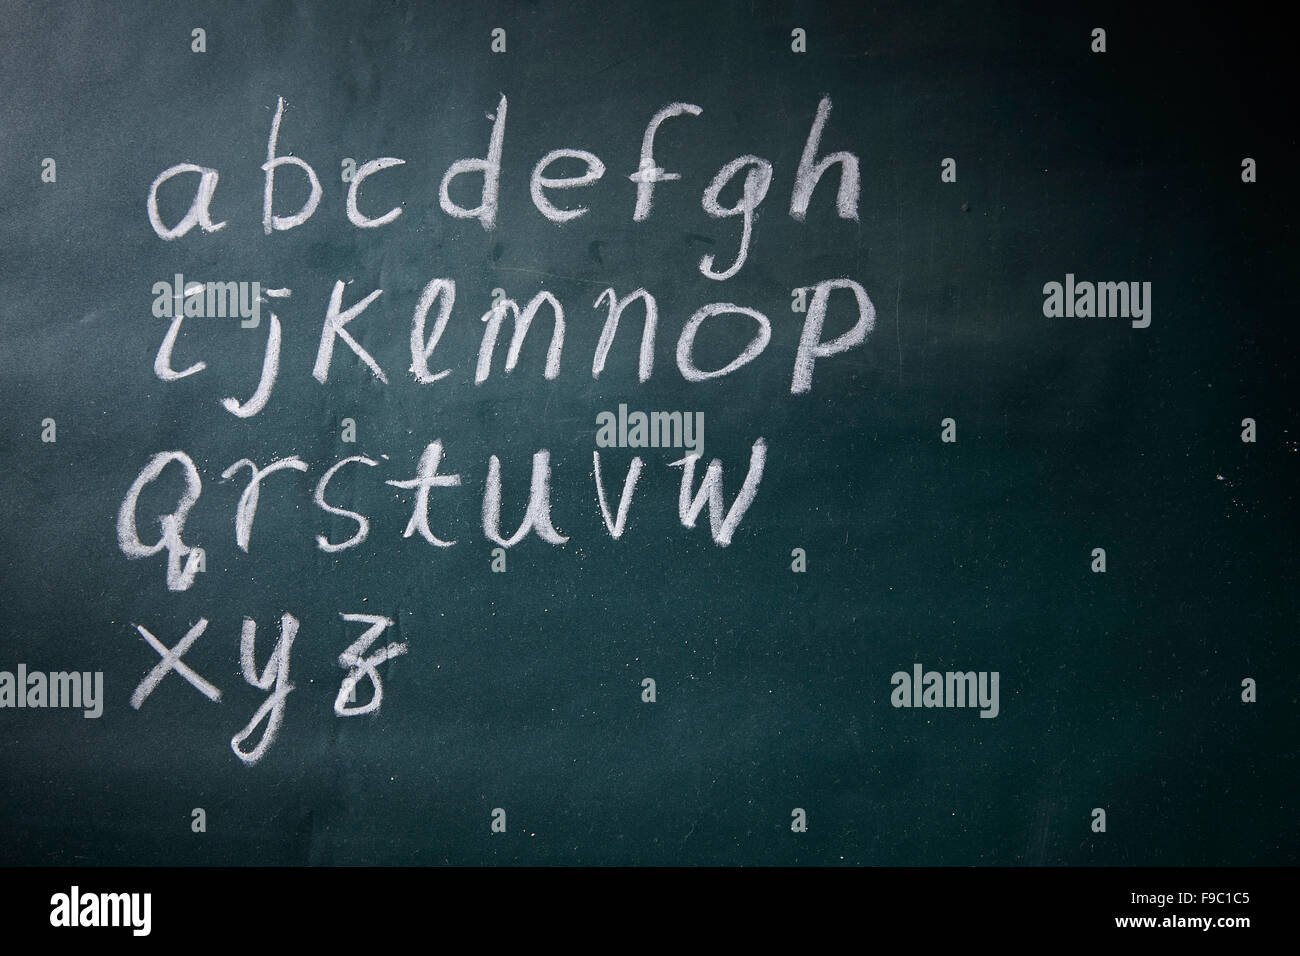 abcdefgh
ijklmnop
qrstuvw
xyz
alamy
alamy
alamy
alamy
alamy
alamy
Image ID: F9C1C5
www.alamy.com